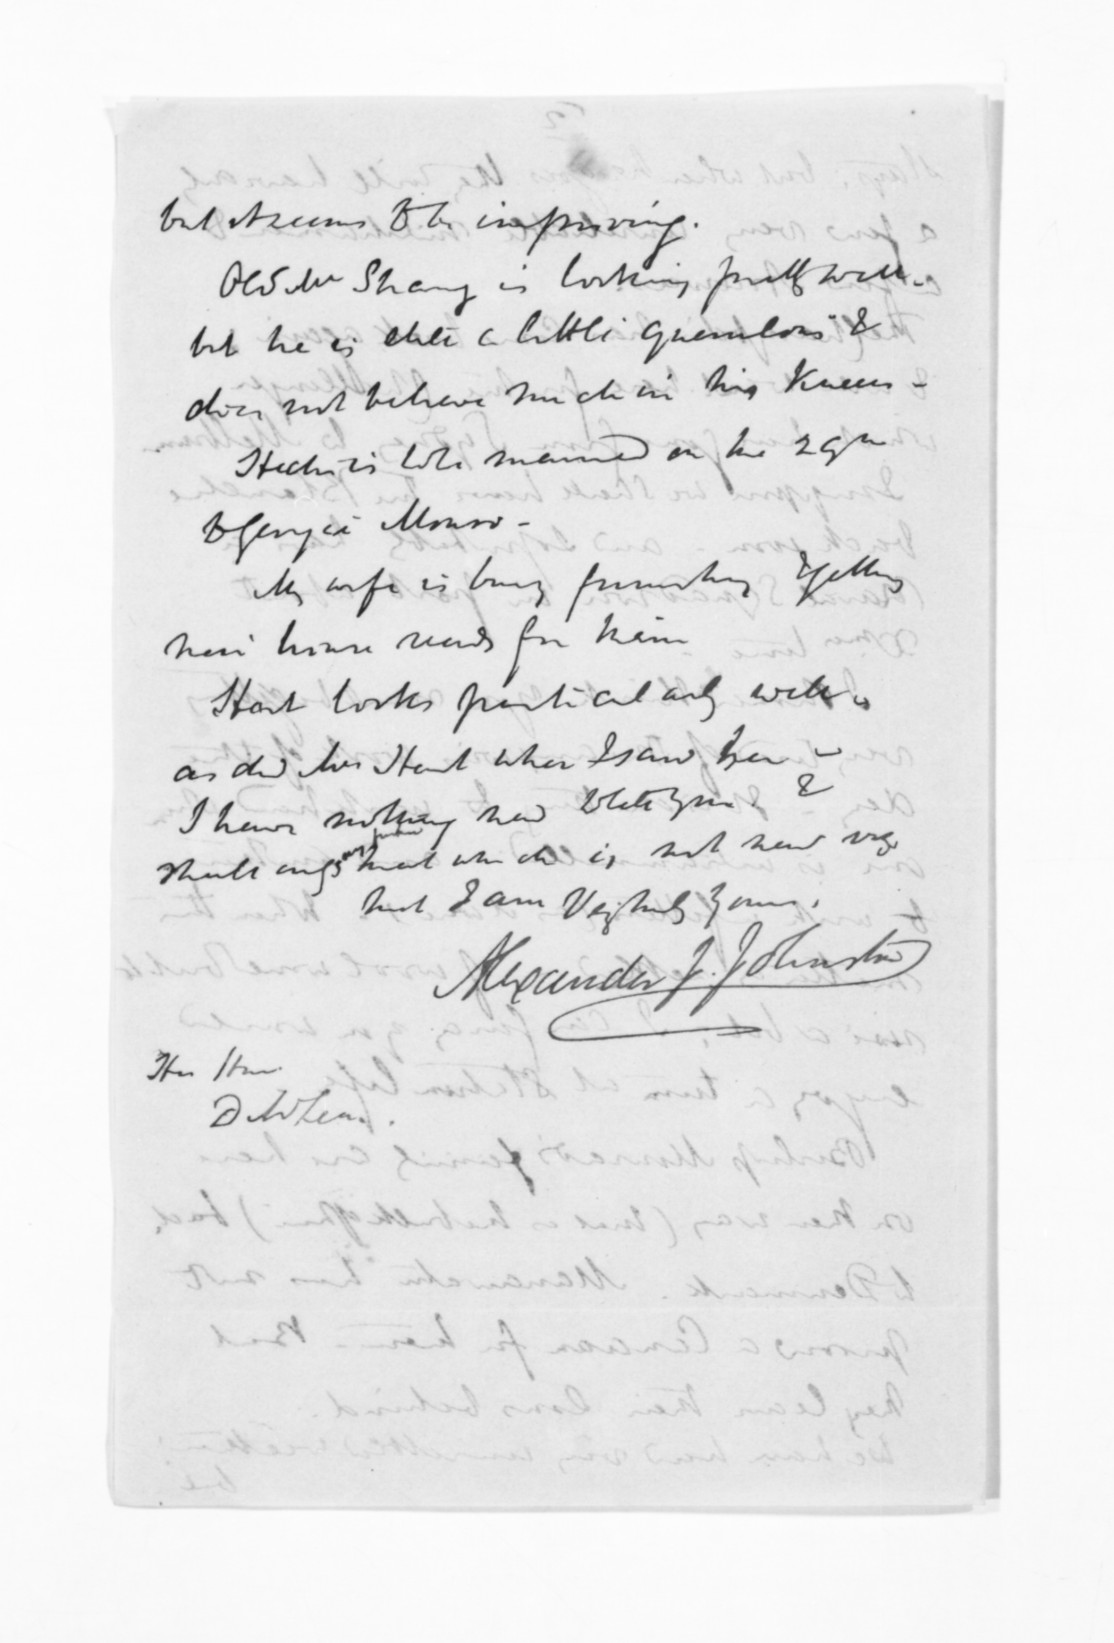 but it seems to be improving.
Old Mr Strang is looking pretty well -
but he is still a little querulous &
does not believe much in his Knees -
Hector is to be married on the 29th
to Georgie Monro -
My wife is busy furnishing & getting
their house ready for them
Hart looks particularly well -
as did Mrs Hart when I saw her -
I have nothing new to tell you &
shall only say further that which is not new viz
that I am Very truly Yours,
Alexander J. Johnston
Hon
D McLean.